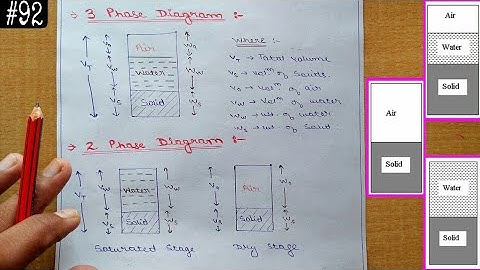 #92
→ 3 Phase Diagram :-
Air
Water
Solid
where :-
V_T → Total Volume
V_s → vol^m of Solids.
V_a → vol^m of air
V_w → Vol^m of water
W_w → wt. of water
W_s → wt. of Solid
→ 2 Phase Diagram :-
Water
Solid
Saturated Stage
Air
Solid
Dry Stage
Air
Water
Solid
Air
Solid
Water
Solid